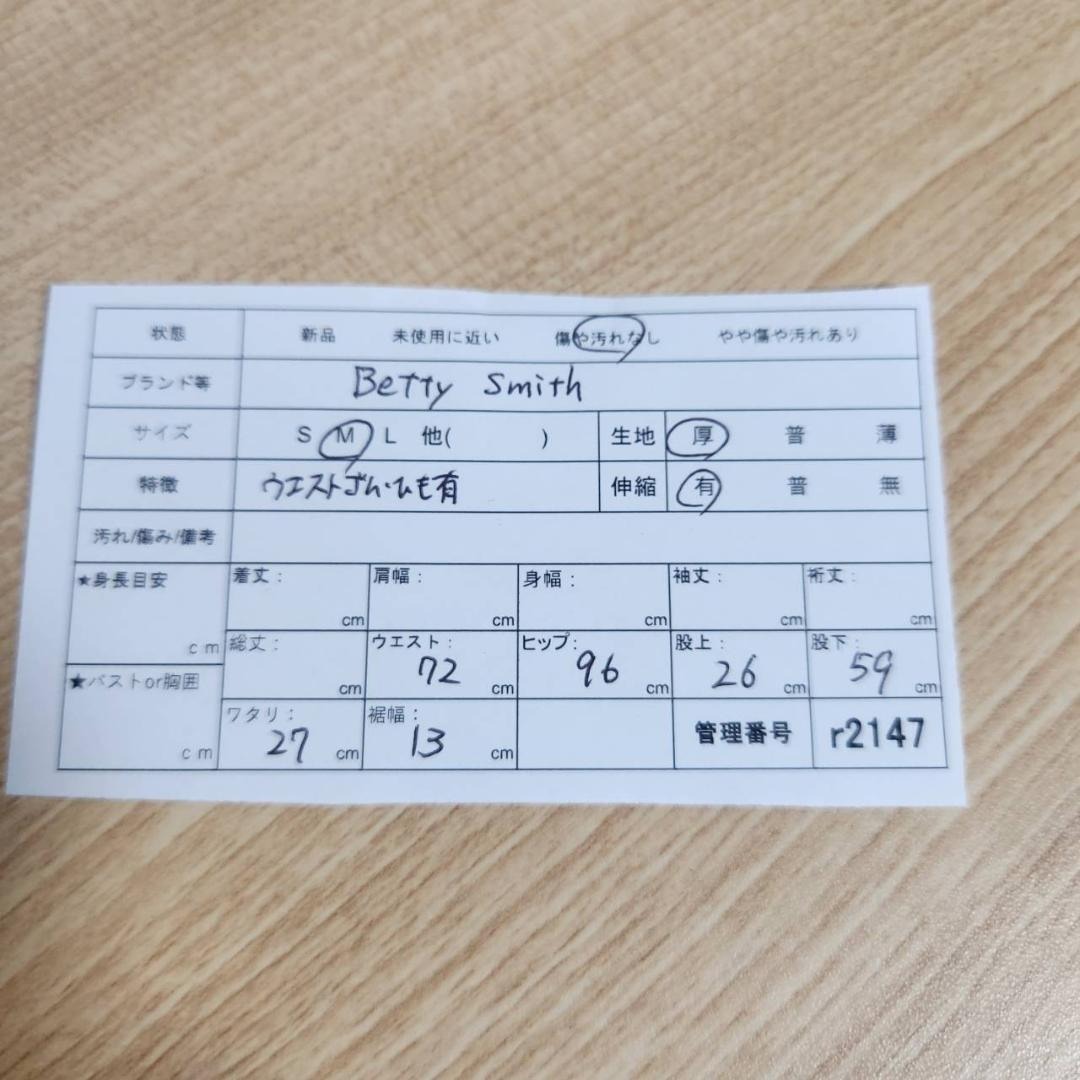 状態 新品 未使用に近い 傷や汚れなし やや傷や汚れあり
ブランド等 Betty Smith
サイズ S M L 他( ) 生地 厚 普 薄
特徴 ウエストゴム・ひも有 伸縮 有 普 無
汚れ/傷み/備考
★身長目安 cm 着丈: cm 肩幅: cm 身幅: cm 袖丈: cm 裄丈: cm
総丈: cm ウエスト: 72 cm ヒップ: 96 cm 股上: 26 cm 股下: 59 cm
★バストor胸囲 cm ワタリ: 27 cm 裾幅: 13 cm 管理番号 r2147